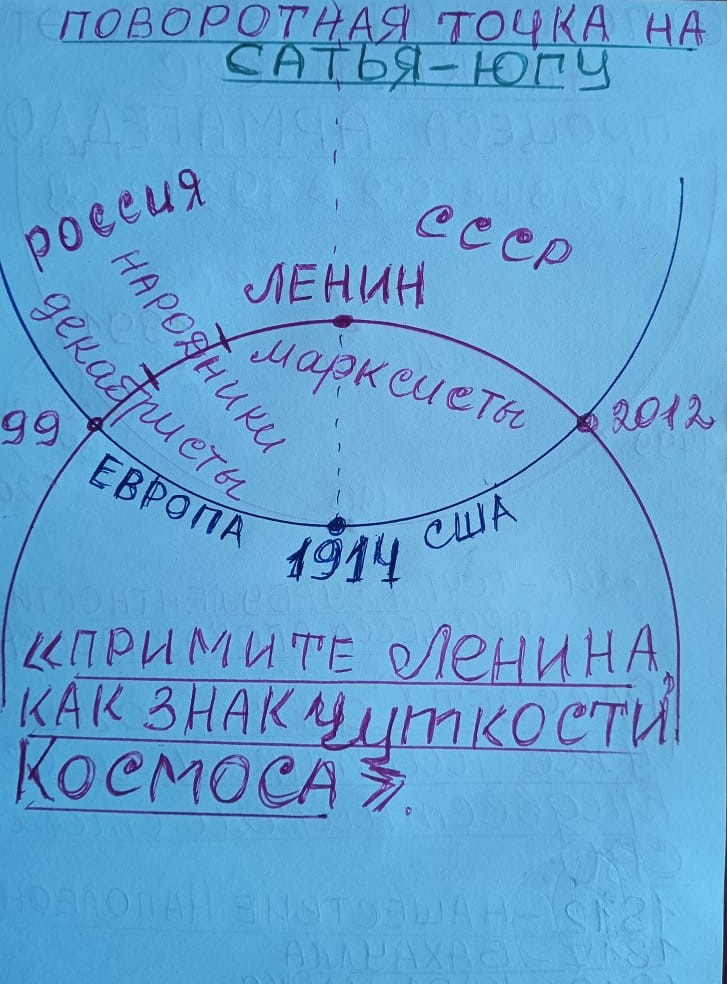 ПОВОРОТНАЯ ТОЧКА НА
САТЬЯ-ЮГУ
РОССИЯ
СССР
НАРОДНИКИ
ЛЕНИН
декабристы
марксисты
99
2012
ЕВРОПА
США
1914
«ПРИМИТЕ ЛЕНИНА,
КАК ЗНАК ЧУТКОСТИ
КОСМОСА».